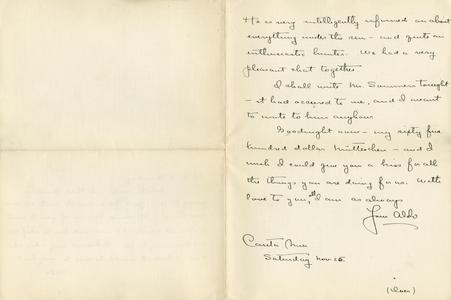 He is very intelligently informed on about
everything under the sun – and quite an
enthusiastic hunter. We had a very
pleasant chat together.
I shall write Mr. Sammers tonight
– it had occured to me, and I meant
to write to him anyhow.
Goodnight now – my sixty five
hundred dollar Mütterchen – and I
wish I could give you a kiss for all
the things you are doing for us. With
love to you, I am as always
Your Aldo
Saturday Nov 25
(Over)